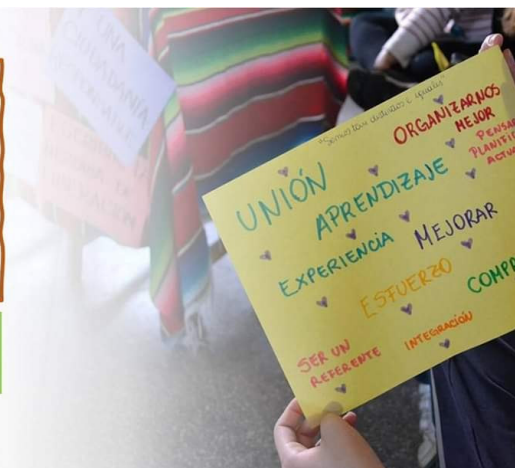 UNA
CIUDADANÍA
"Somos tan distintos e iguales"
ORGANIZARNOS
MEJOR
UNIÓN
APRENDIZAJE
EXPERIENCIA
MEJORAR
ESFUERZO
SER UN
REFERENTE
INTEGRACIÓN